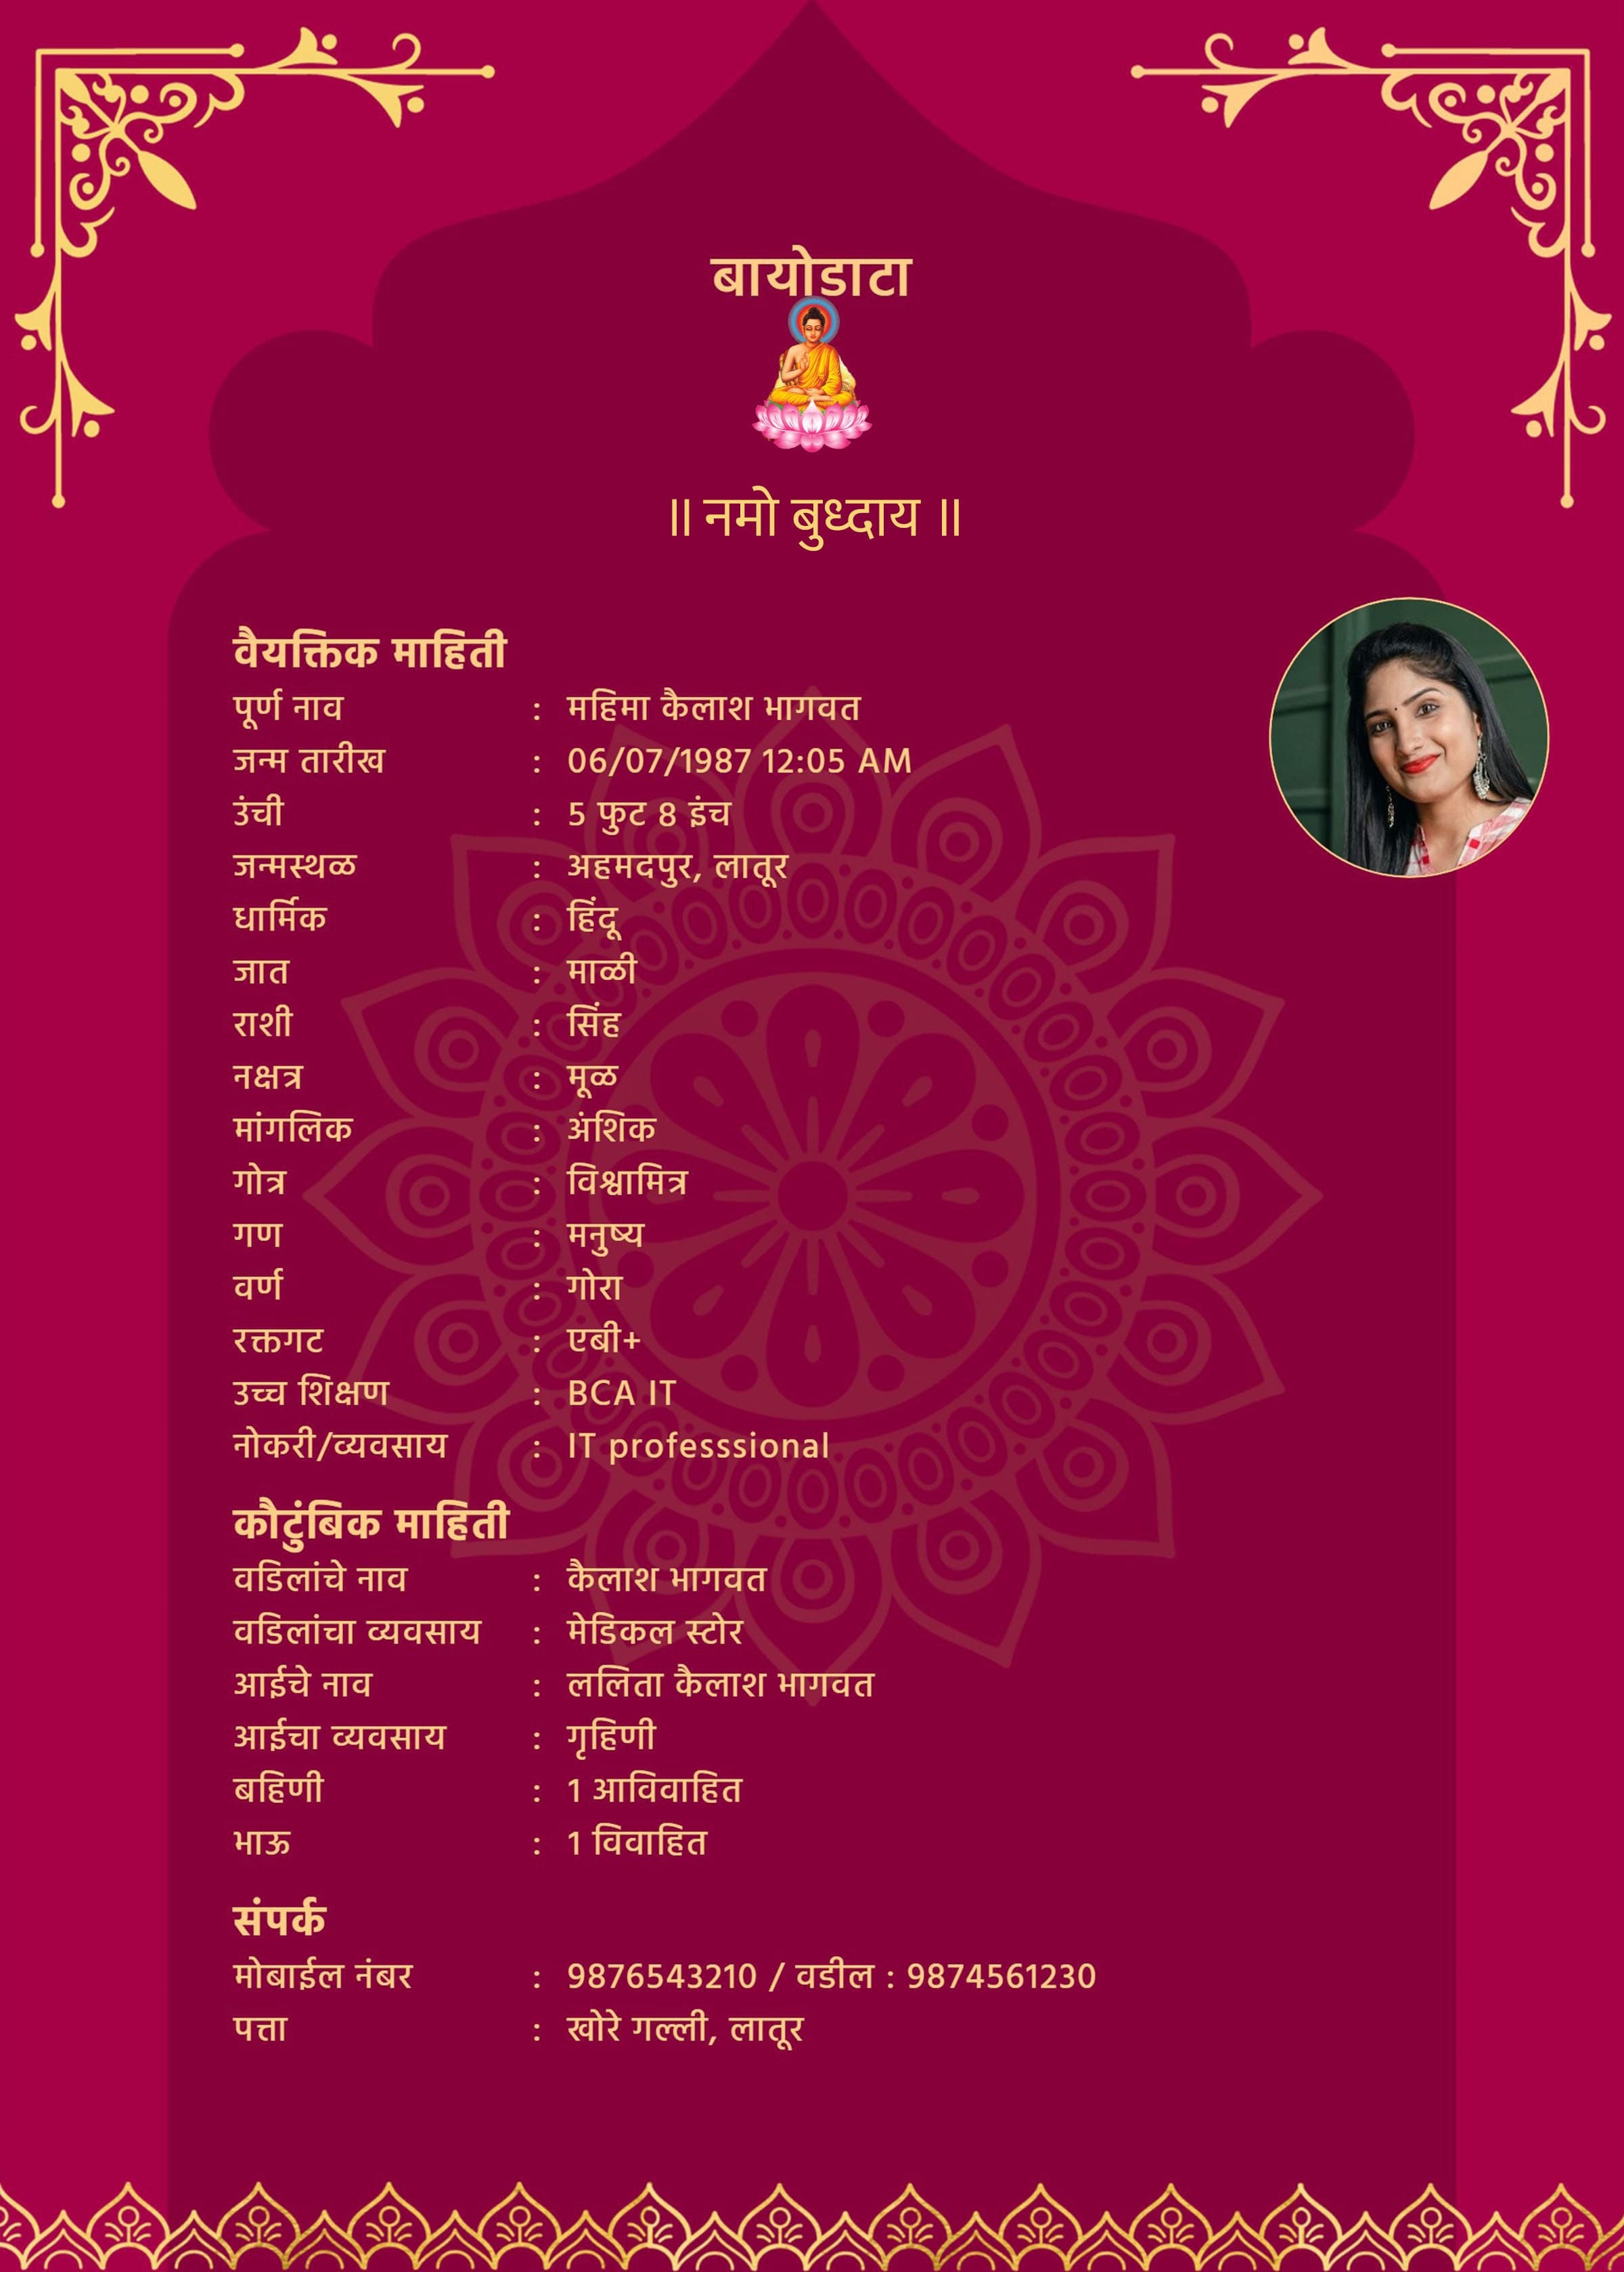 बायोडाटा
॥ नमो बुध्दाय ॥
वैयक्तिक माहिती
पूर्ण नाव : महिमा कैलाश भागवत
जन्म तारीख : 06/07/1987 12:05 AM
उंची : 5 फुट 8 इंच
जन्मस्थळ : अहमदपुर, लातूर
धार्मिक : हिंदू
जात : माळी
राशी : सिंह
नक्षत्र : मूळ
मांगलिक : अंशिक
गोत्र : विश्वामित्र
गण : मनुष्य
वर्ण : गोरा
रक्तगट : एबी+
उच्च शिक्षण : BCA IT
नोकरी/व्यवसाय : IT professsional
कौटुंबिक माहिती
वडिलांचे नाव : कैलाश भागवत
वडिलांचा व्यवसाय : मेडिकल स्टोर
आईचे नाव : ललिता कैलाश भागवत
आईचा व्यवसाय : गृहिणी
बहिणी : 1 आविवाहित
भाऊ : 1 विवाहित
संपर्क
मोबाईल नंबर : 9876543210 / वडील : 9874561230
पत्ता : खोरे गल्ली, लातूर